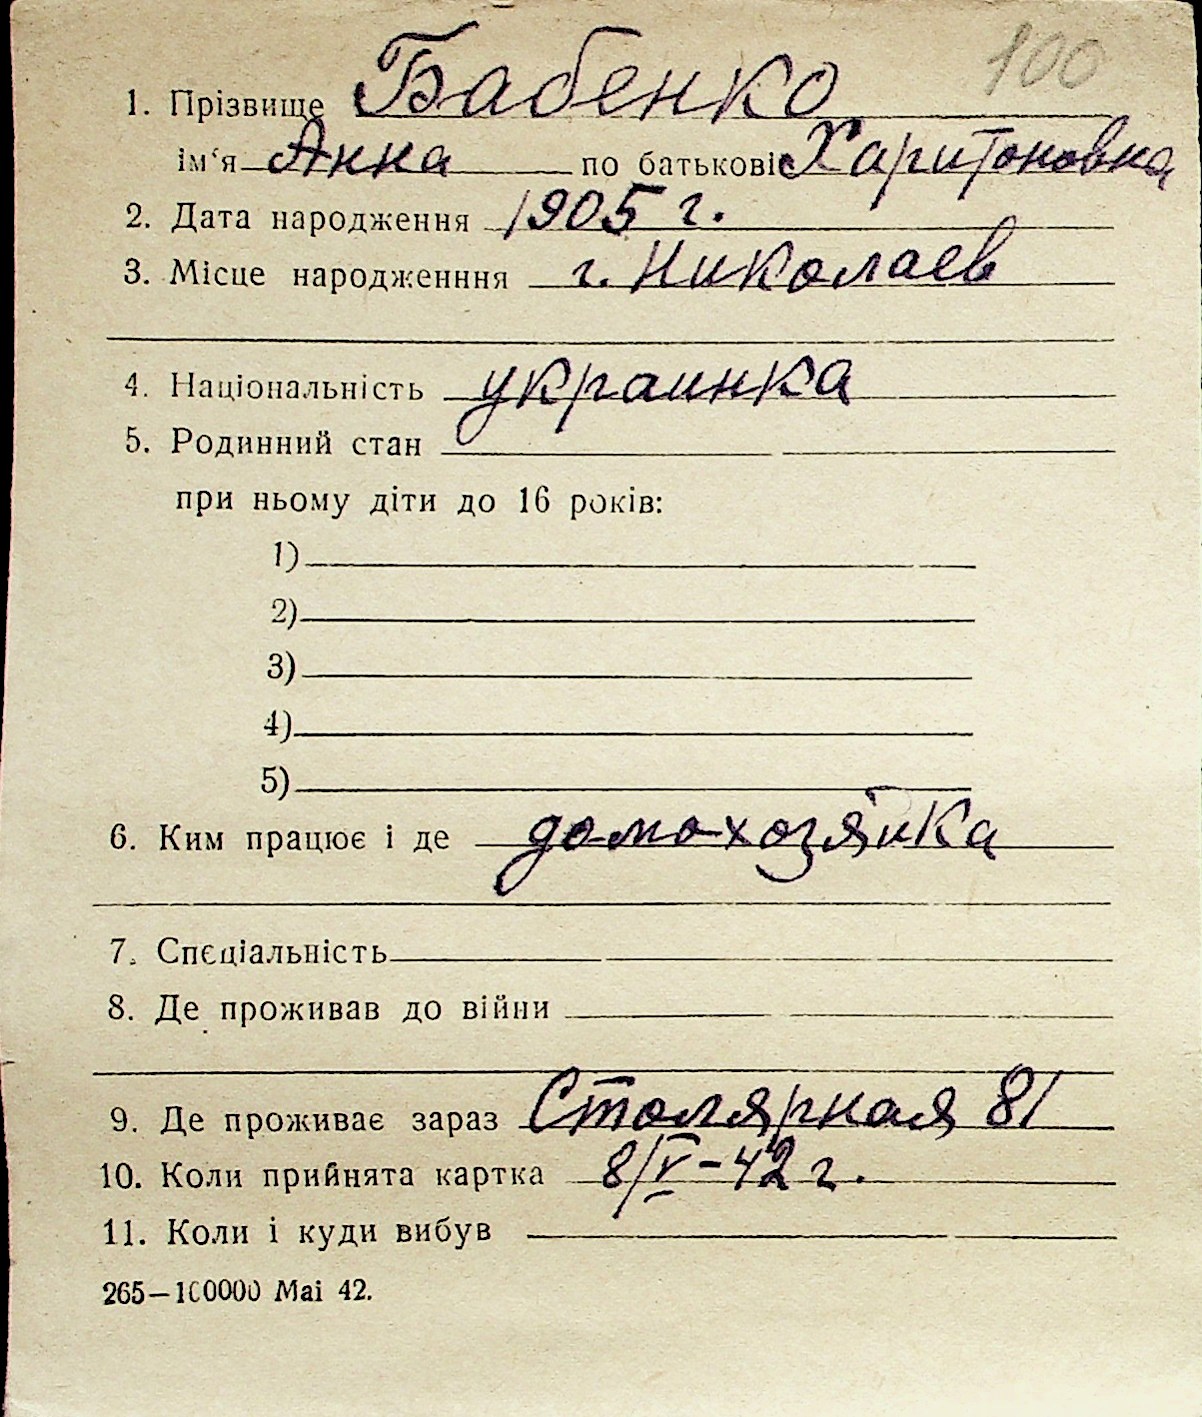 100
1. Прізвище Бабенко
ім‘я Анна по батькові Харитоновна
2. Дата народження 1905 г.
3. Місце народженння г. Николаев
4. Національність украинка
5. Родинний стан
при ньому діти до 16 років:
1)
2)
3)
4)
5)
6. Ким працює і де домохозяйка
7. Спєціальність
8. Де проживав до війни
9. Де проживає зараз Столярная 81
10. Коли прийнята картка 8/V-42 г.
11. Коли і куди вибув
265—100000 Mai 42.